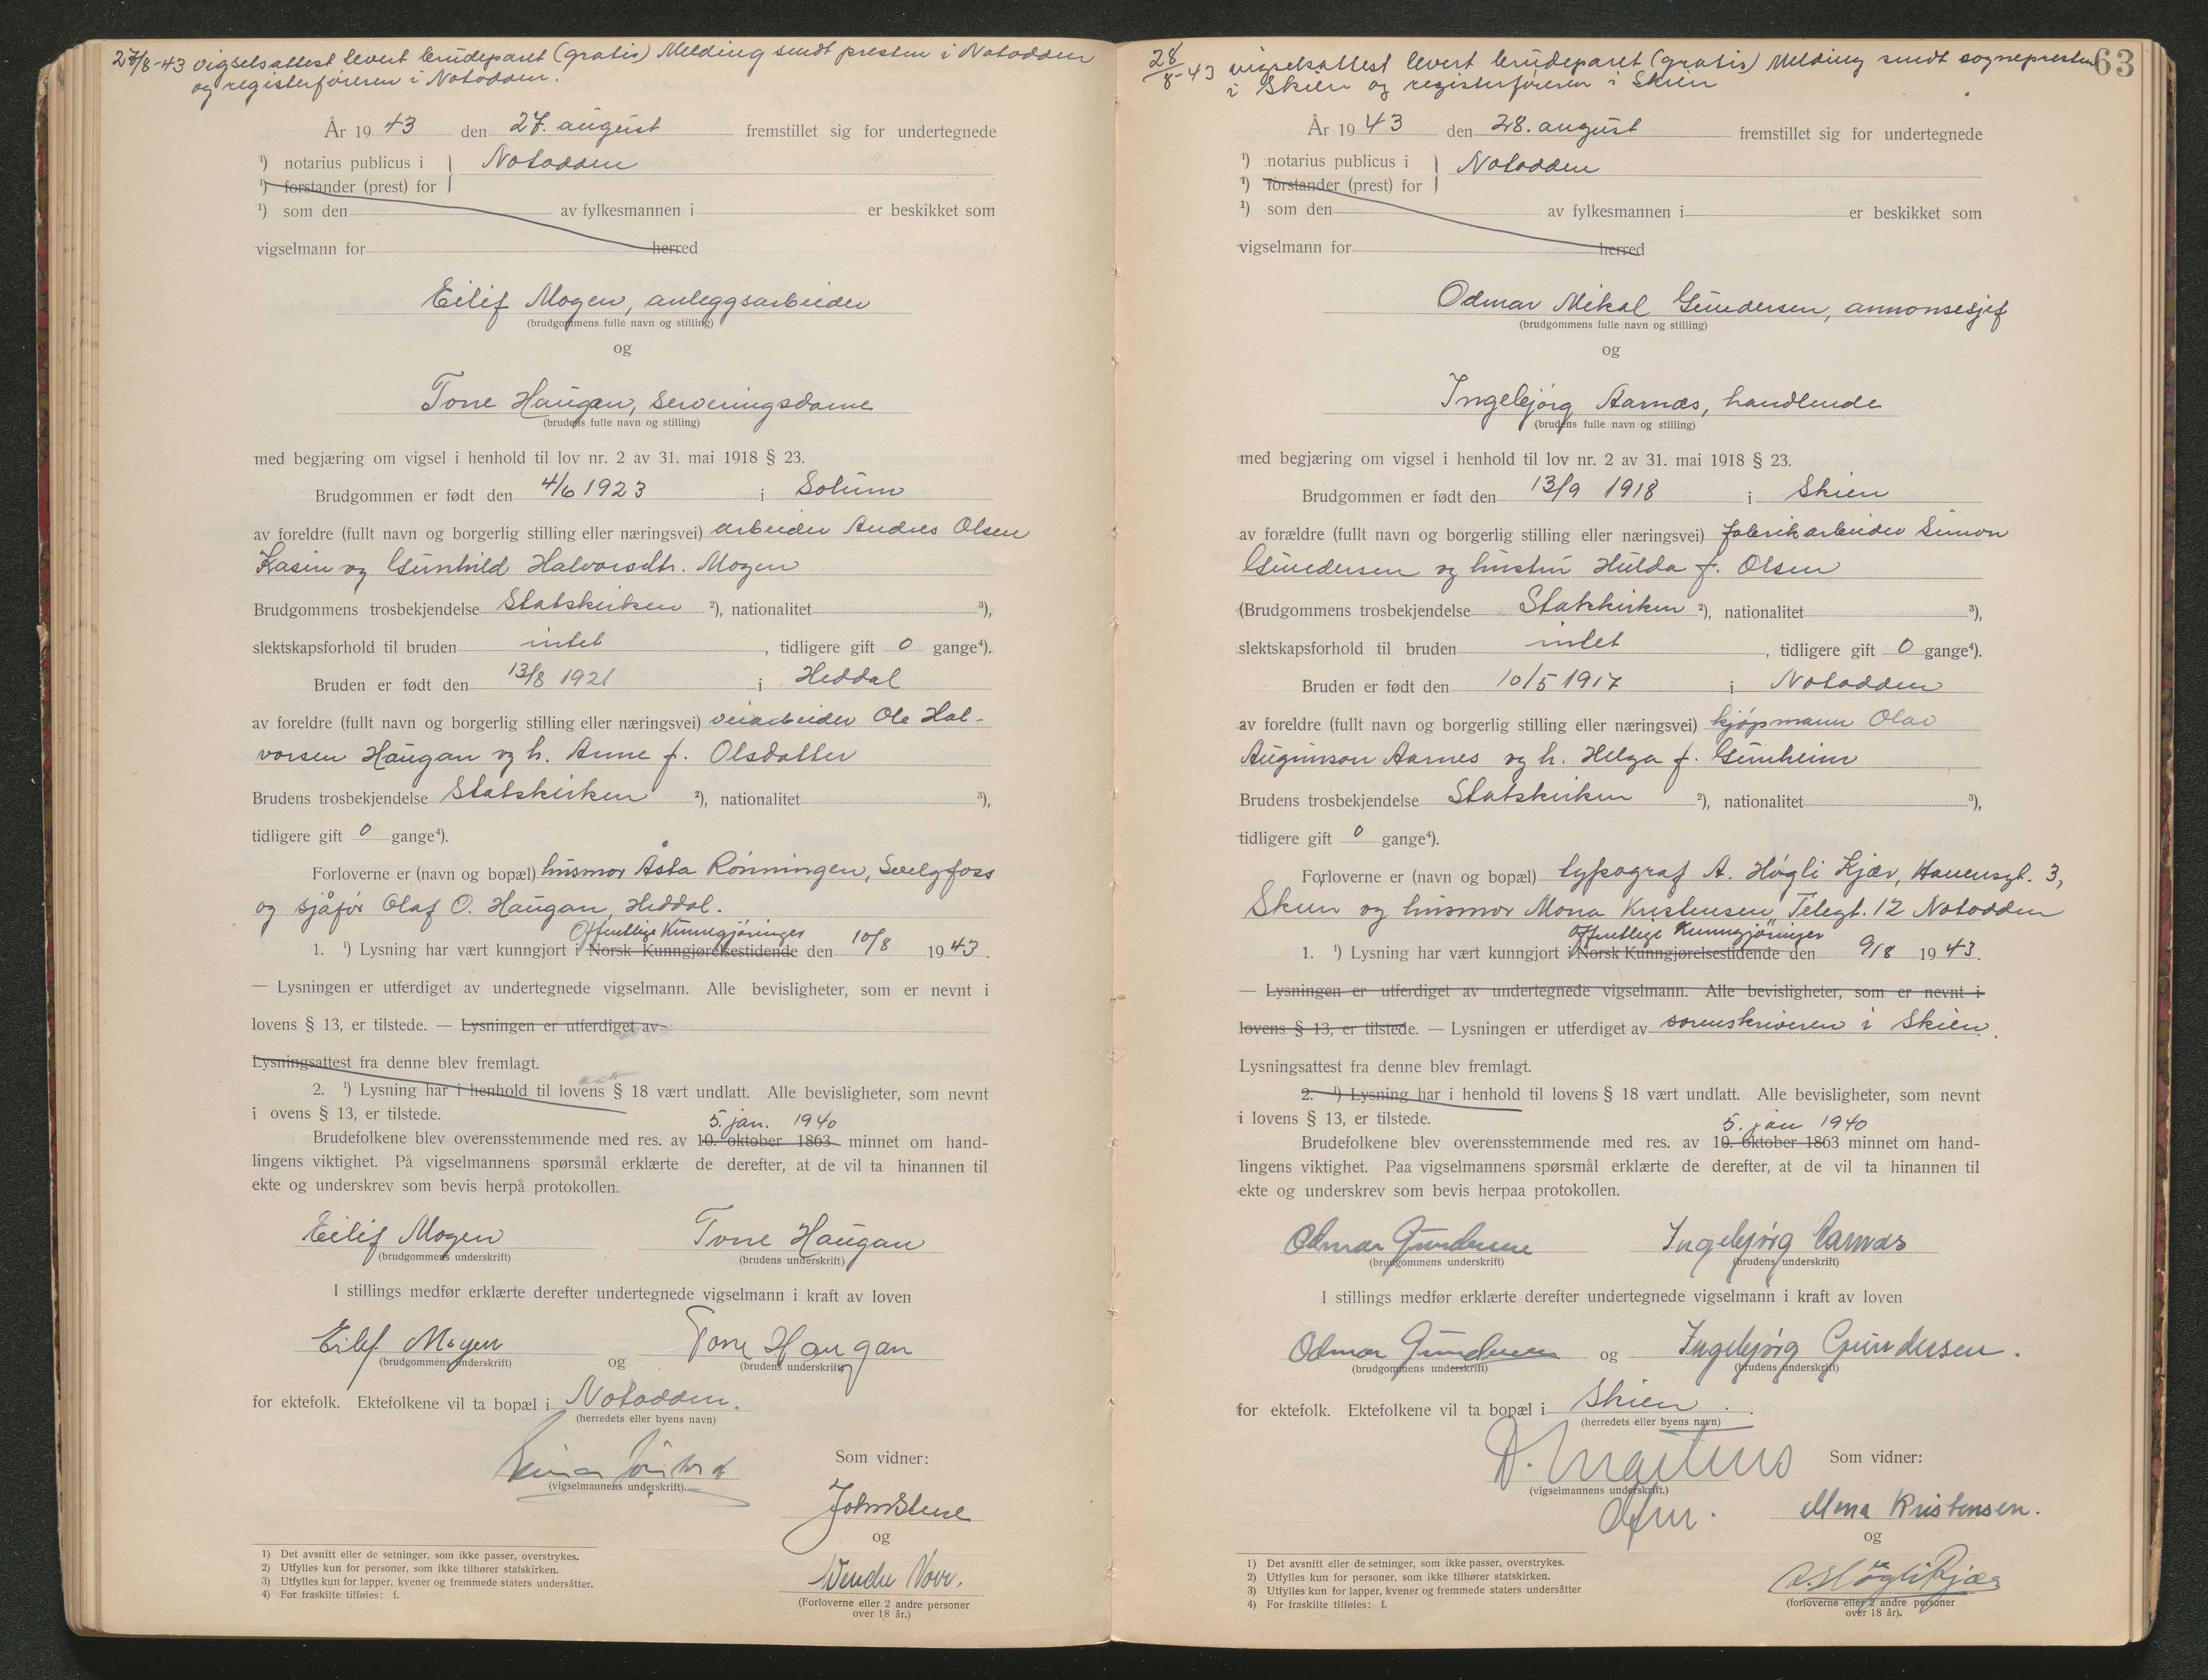 27/8-43 vigselsattest levert brudeparet (gratis) Melding sendt presten i Notodden
og registerføreren i Notodden.
År 1943 den 27. august fremstillet sig for undertegnede
¹) notarius publicus i } Notodden
¹) forstander (prest) for
¹) som den av fylkesmannen i er beskikket som
vigselmann for herred
Eilif Mogen, anleggsarbeider
(brudgommens fulle navn og stilling)
og
Tone Haugan, serveringsdame
(brudens fulle navn og stilling)
med begjæring om vigsel i henhold til lov nr. 2 av 31. mai 1918 § 23.
Brudgommen er født den 4/6 1923 i Solum
av foreldre (fullt navn og borgerlig stilling eller næringsvei) arbeider Andres Olsen
Kasin og Gunhild Halvorsdtr. Mogen
Brudgommens trosbekjendelse Statskirken ²), nationalitet ³),
slektskapsforhold til bruden intet, tidligere gift 0 gange⁴).
Bruden er født den 13/8 1921 i Heddal
av foreldre (fullt navn og borgerlig stilling eller næringsvei) veiarbeider Ole Hal-
vorsen Haugan og h. Anne f. Olsdatter
Brudens trosbekjendelse Statskirken ²), nationalitet ³),
tidligere gift 0 gange⁴).
Forloverne er (navn og bopæl) husmor Åsta Rønningen, Svelgfoss
og sjåfør Olaf O. Haugan, Heddal.
Offentlige Kunngjøringer
1. ¹) Lysning har vært kunngjort i Norsk Kunngjørelsestidende den 10/8 1943.
— Lysningen er utferdiget av undertegnede vigselmann. Alle bevisligheter, som er nevnt i
lovens § 13, er tilstede. — Lysningen er utferdiget av
Lysningsattest fra denne blev fremlagt.
2. ¹) Lysning har i henhold til lovens § 18 vært undlatt. Alle bevisligheter, som nevnt
i ovens § 13, er tilstede.
5. jan. 1940
Brudefolkene blev overensstemmende med res. av 10. oktober 1863 minnet om hand-
lingens viktighet. På vigselmannens spørsmål erklærte de derefter, at de vil ta hinannen til
ekte og underskrev som bevis herpå protokollen.
Eilif Mogen Tone Haugan
(brudgommens underskrift) (brudens underskrift)
I stillings medfør erklærte derefter undertegnede vigselmann i kraft av loven
Eilif Mogen og Tone Haugan
(brudgommens underskrift) (brudens underskrift)
for ektefolk. Ektefolkene vil ta bopæl i Notodden.
(herredets eller byens navn)
Som vidner:
(vigselmannens underskrift).
John Stene
og
(Forloverne eller 2 andre personer
over 18 år.)
1) Det avsnitt eller de setninger, som ikke passer, overstrykes.
2) Utfylles kun for personer, som ikke tilhører statskirken.
3) Utfylles kun for lapper, kvener og fremmede staters undersåtter.
4) For fraskilte tilføies: f.
63
28/8-43 vigselsattest levert brudeparet (gratis) Melding sendt sognepresten
i Skien og registerføreren i Skien
År 1943 den 28. august fremstillet sig for undertegnede
¹) notarius publicus i } Notodden
¹) forstander (prest) for
¹) som den av fylkesmannen i er beskikket som
vigselmann for herred
Odmar Mikal Gundersen, annonsesjef
(brudgommens fulle navn og stilling)
og
Ingebjørg Aarnes, handlende
(brudens fulle navn og stilling)
med begjæring om vigsel i henhold til lov nr. 2 av 31. mai 1918 § 23.
Brudgommen er født den 13/9 1918 i Skien
av forældre (fullt navn og borgerlig stilling eller næringsvei) fabrikarbeider Simon
Gundersen og hustru Hulda f. Olsen
(Brudgommens trosbekjendelse Statskirken ²), nationalitet ³),
slektskapsforhold til bruden intet, tidligere gift 0 gange⁴).
Bruden er født den 10/5 1917 i Notodden
av foreldre (fullt navn og borgerlig stilling eller næringsvei) kjøpmann Olav
Augunson Aarnes og h. Helga f. Gunheim
Brudens trosbekjendelse Statskirken ²), nationalitet ³),
tidligere gift 0 gange⁴).
Forloverne er (navn og bopæl) typograf A. Høgli Kjær, Hauensgt. 3,
Skien og husmor Mona Kristensen, Telegt. 12 Notodden
Offentlige Kunngjøringer
1. ¹) Lysning har vært kunngjort i Norsk Kunngjørelsestidende den 9/8 1943.
— Lysningen er utferdiget av undertegnede vigselmann. Alle bevisligheter, som er nevnt i
lovens § 13, er tilstede. — Lysningen er utferdiget av sorenskriveren i Skien.
Lysningsattest fra denne blev fremlagt.
2. ¹) Lysning har i henhold til lovens § 18 vært undlatt. Alle bevisligheter, som nevnt
i lovens § 13, er tilstede.
5. jan 1940
Brudefolkene blev overensstemmende med res. av 10. oktober 1863 minnet om hand-
lingens viktighet. Paa vigselmannens spørsmål erklærte de derefter, at de vil ta hinannen til
ekte og underskrev som bevis herpaa protokollen.
Odmar Gundersen Ingebjørg Aarnæs
(brudgommens underskrift) (brudens underskrift)
I stillings medfør erklærte derefter undertegnede vigselmann i kraft av loven
Odmar Gundersen og Ingebjørg Gundersen.
(brudgommens underskrift) (brudens underskrift)
for ektefolk. Ektefolkene vil ta bopæl i Skien.
(herredets eller byens navn)
D. Martens Som vidner:
(vigselmannens underskrift.)
Mona Kristensen.
og
A. Høgli Kjær
(forloverne eller 2 andre personer
over 18 år).
1) Det avsnitt eller de setninger, som ikke passer, overstrykes.
2) Utfylles kun for personer, som ikke tilhører statskirken.
3) Utfylles kun for lapper, kvener og fremmede staters undersåtter
4) For fraskilte tilføies: f.